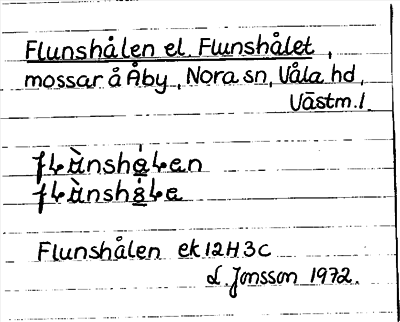 Flunshålen el. Flunshålet,
mossar å Åby, Nora sn, Våla hd,
Västm. l.
Flunshålen ek 12H3c
L. Jonsson 1972.